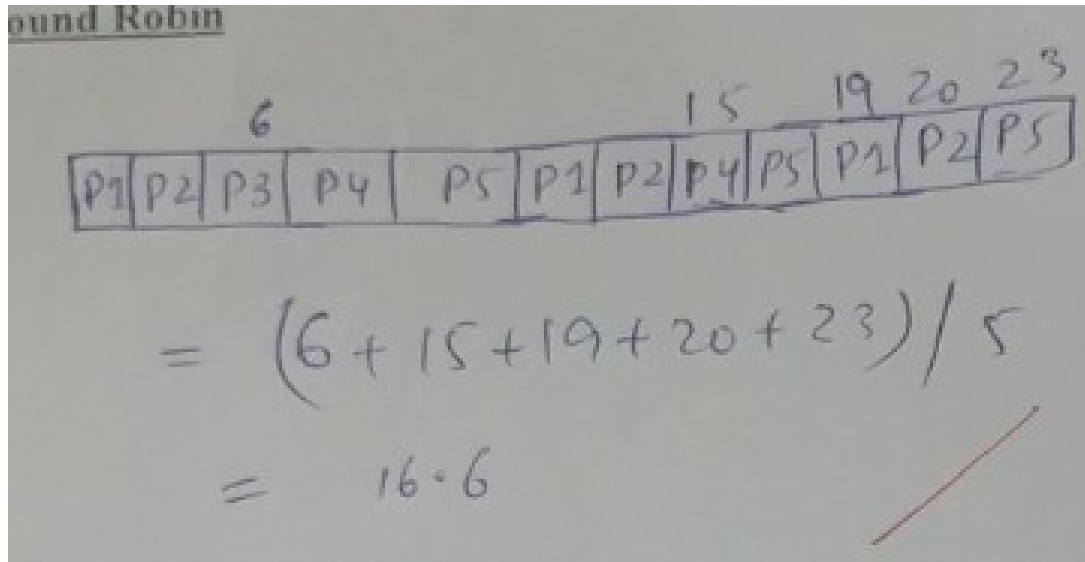 ound Robin
6 15 19 20 23
P1 P2 P3 P4 P5 P1 P2 P4 P5 P1 P2 P5
= (6+15+19+20+23)/5
= 16.6